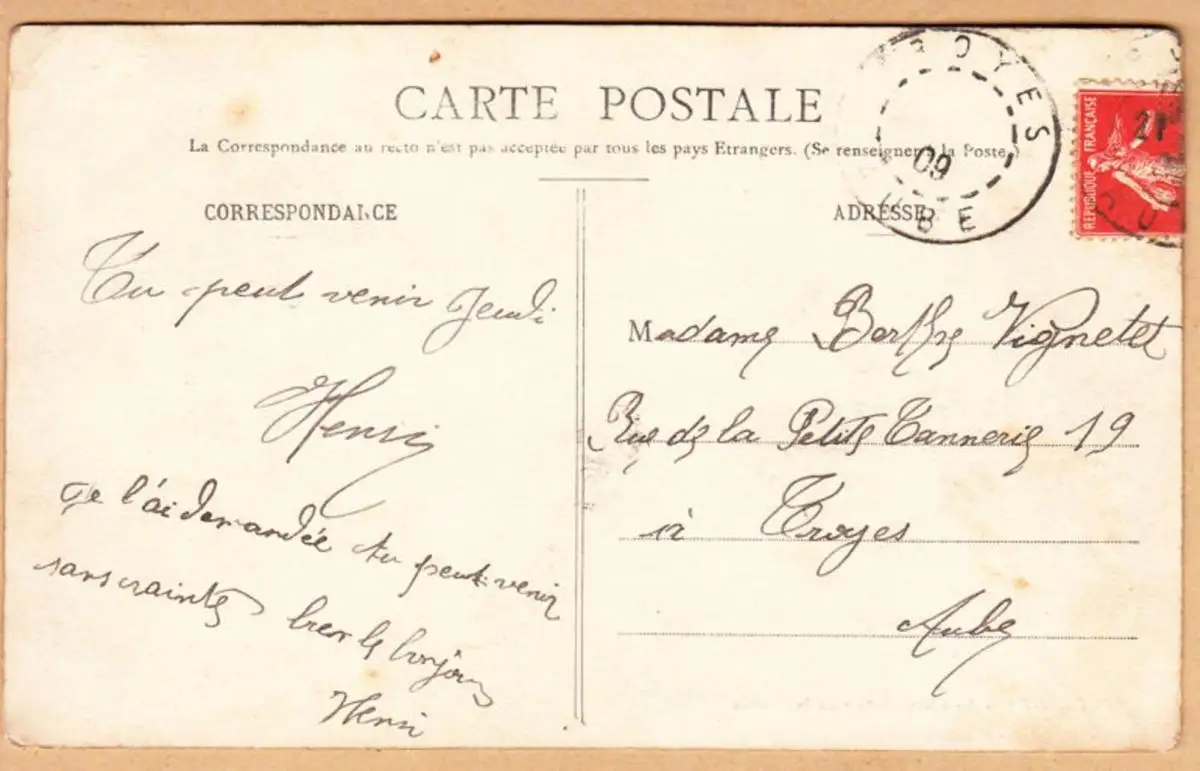 CARTE POSTALE
La Correspondance au recto n'est pas acceptée par tous les pays Etrangers. (Se renseigner à la Poste.)
CORRESPONDANCE
Tu peut venir Jeudi
Henri
Je l'ai demandée tu peut venir
sans crainte bien le bonjour
Henri
ADRESSE
Madame Berthe Vignetet
Rue de la Petite Tannerie 19
à Troyes
Aube
TROYES
09
AUBE
REPUBLIQUE FRANÇAISE
21